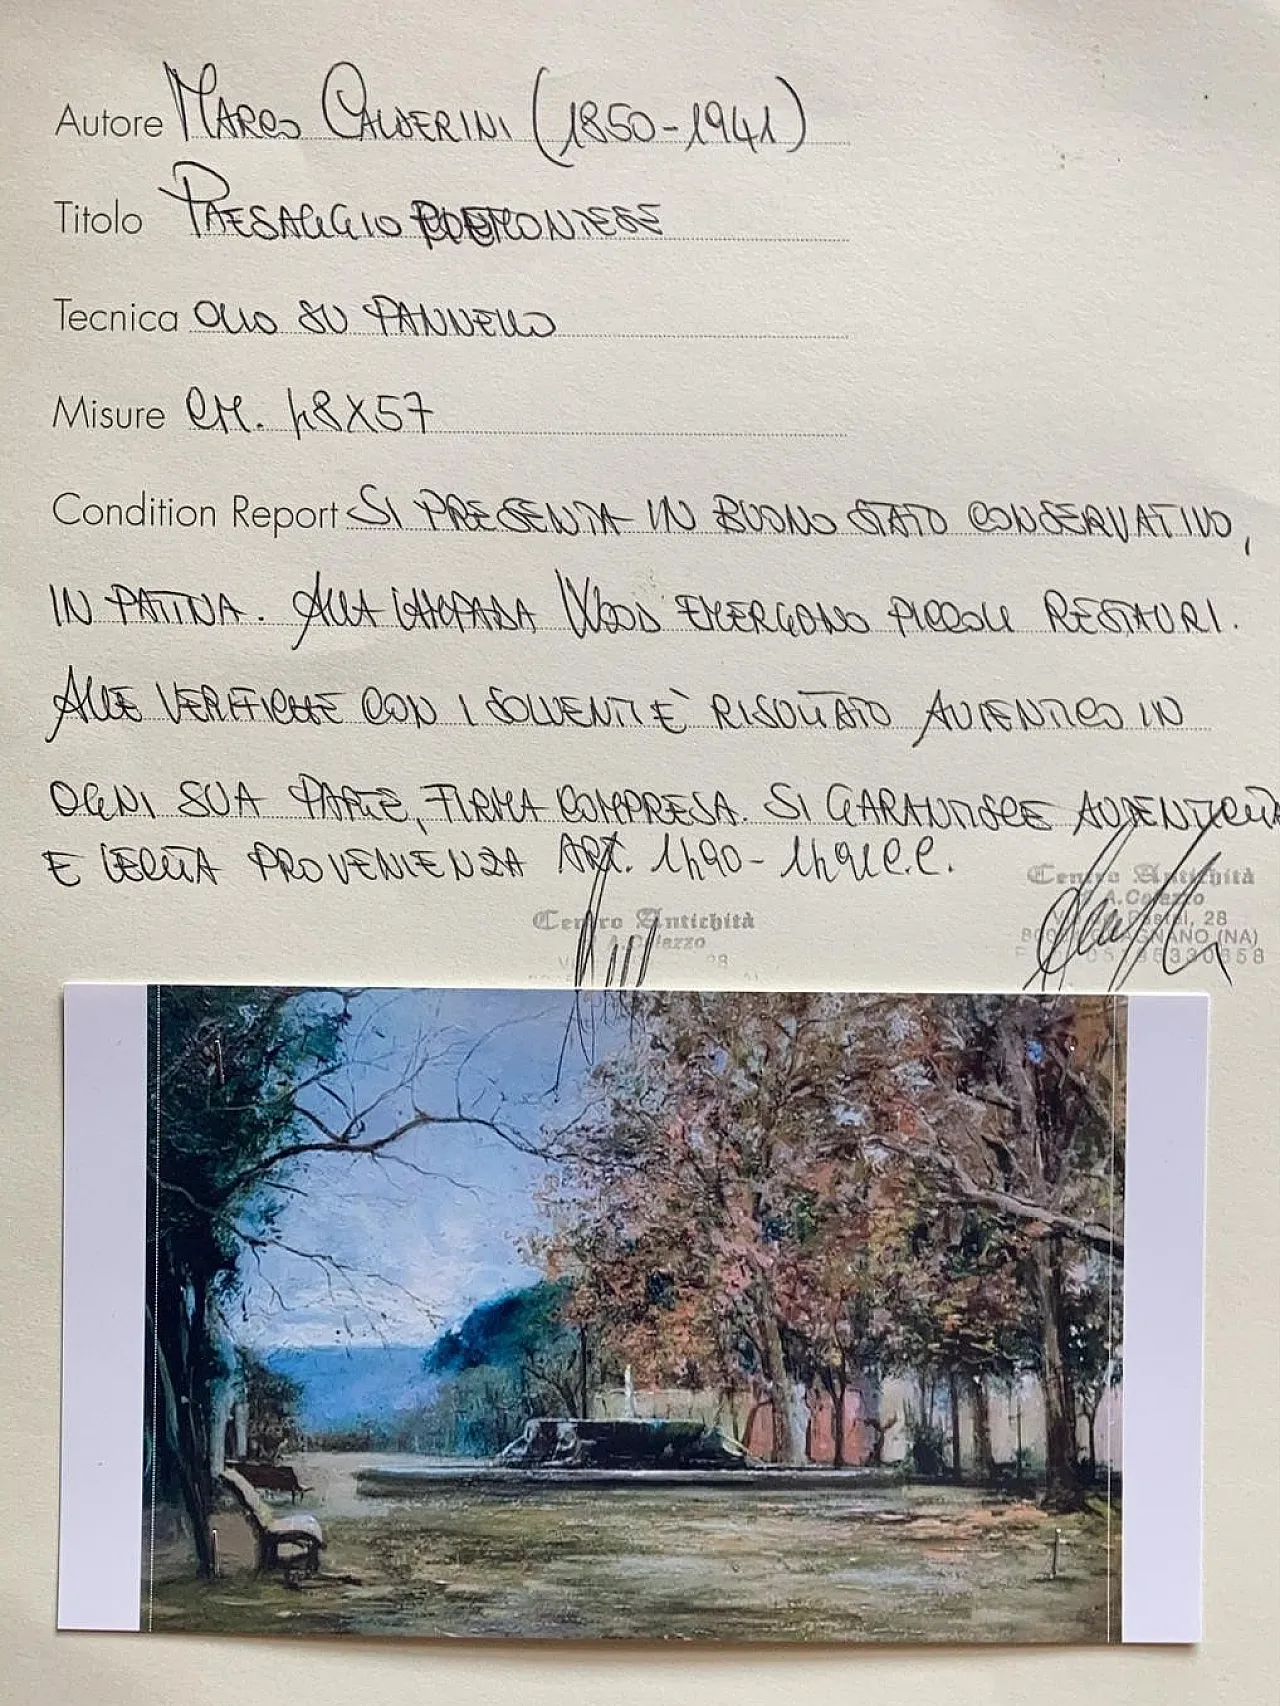 Autore MARCO CALDERINI (1850-1941)
Titolo PAESAGGIO PIEMONTESE
Tecnica OLIO SU PANNELLO
Misure CM. 48X57
Condition Report SI PRESENTA IN BUONO STATO CONSERVATIVO,
IN PATINA. ALLA LAMPADA WOOD EMERGONO PICCOLI RESTAURI.
ALLE VERIFICHE CON I SOLVENTI È RISULTATO AUTENTICO IN
OGNI SUA PARTE, FIRMA COMPRESA. SI GARANTISCE AUTENTICITÀ
E LECITA PROVENIENZA ART. 1490-1491 C.C.
Centro Antichità
A. Colazzo
28
Centro Antichità
A. Colazzo
28
(NA)